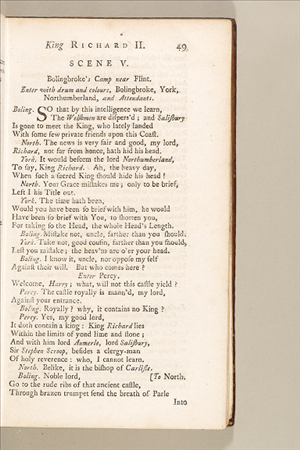 King RICHARD II. 49
SCENE V.
Bolingbroke's Camp near Flint.
Enter with drum and colours, Bolingbroke, York,
Northumberland, and Attendants.
Boling. SO that by this intelligence we learn,
The Welshmen are dispers'd; and Salisbury
Is gone to meet the King, who lately landed
With some few private friends upon this Coast.
North. The news is very fair and good, my lord,
Richard, not far from hence, hath hid his head.
York. It would beseem the lord Northumberland,
To say, King Richard. Ah, the heavy day,
When such a sacred King should hide his head!
North. Your Grace mistakes me; only to be brief,
Left I his Title out.
York. The time hath been,
Would you have been so brief with him, he would
Have been so brief with You, to shorten you,
For taking so the Head, the whole Head's Length.
Boling. Mistake not, uncle, farther than you should.
York. Take not, good cousin, farther than you should,
Lest you mistake; the heav'ns are o'er your head.
Boling. I know it, uncle, nor oppose my self
Against their will. But who comes here?
Enter Percy.
Welcome, Harry; what, will not this castle yield?
Percy. The castle royally is mann'd, my lord,
Against your entrance.
Boling. Royally? why, it contains no King?
Percy. Yes, my good lord,
It doth contain a king: King Richard lies
Within the limits of yond lime and stone;
And with him lord Aumerle, lord Salisbury,
Sir Stephen Scroop, besides a clergy-man
Of holy reverence: who, I cannot learn.
North. Belike, it is the bishop of Carlisle.
Boling. Noble lord, [To North.
Go to the rude ribs of that ancient castle,
Through brazen trumpet send the breath of Parle
Into